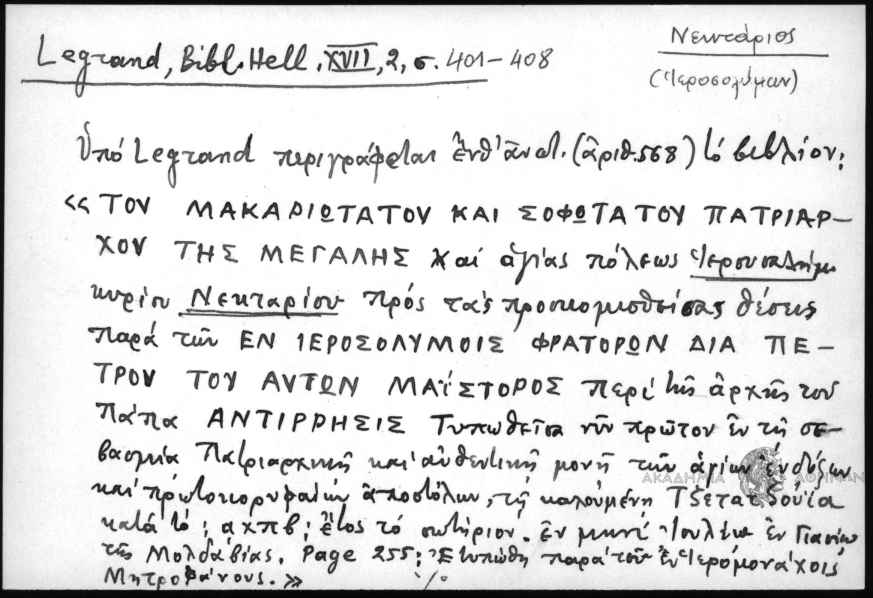 Legrand, Bibl. Hell. XVII, 2, σ. 401-408
Νεκτάριος
(Ἱεροσολύμων)
Ὑπό Legrand περιγράφεται ἐνθ' ἀνωτ. (ἀριθ. 568) τό βιβλίον:
«ΤΟΥ ΜΑΚΑΡΙΩΤΑΤΟΥ ΚΑΙ ΣΟΦΩΤΑΤΟΥ ΠΑΤΡΙΑΡ-
ΧΟΥ ΤΗΣ ΜΕΓΑΛΗΣ καί ἁγίας πόλεως Ἱερουσαλήμ
κυρίου Νεκταρίου πρός τάς προσκομισθείσας θέσεις
παρά τῶν ΕΝ ΙΕΡΟΣΟΛΥΜΟΙΣ ΦΡΑΤΟΡΩΝ ΔΙΑ ΠΕ-
ΤΡΟΥ ΤΟΥ ΑΥΤΩΝ ΜΑΪΣΤΟΡΟΣ περί τῆς ἀρχῆς τοῦ
Πάπα ΑΝΤΙΡΡΗΣΙΣ Τυπωθεῖσα νῦν πρῶτον ἐν τῇ σε-
βασμίᾳ Πατριαρχικῇ καί αὐθεντικῇ μονῇ τῶν ἁγίων ἐνδόξων
καί πρωτοκορυφαίων ἀποστόλων, τῇ καλουμένῃ Τζετατζούϊα
κατά τό: αχπβ: ἔτος τό σωτήριον. Ἐν μηνί Ἰουλίῳ ἐν Γιασίῳ
τῆς Μολδαβίας. Page 255: Ἐτυπώθη παρά τοῦ ἐν Ἱερομονάχοις
Μητροφάνους.» ./.
ΑΚΑΔΗΜΙΑ ΑΘΗΝΩΝ